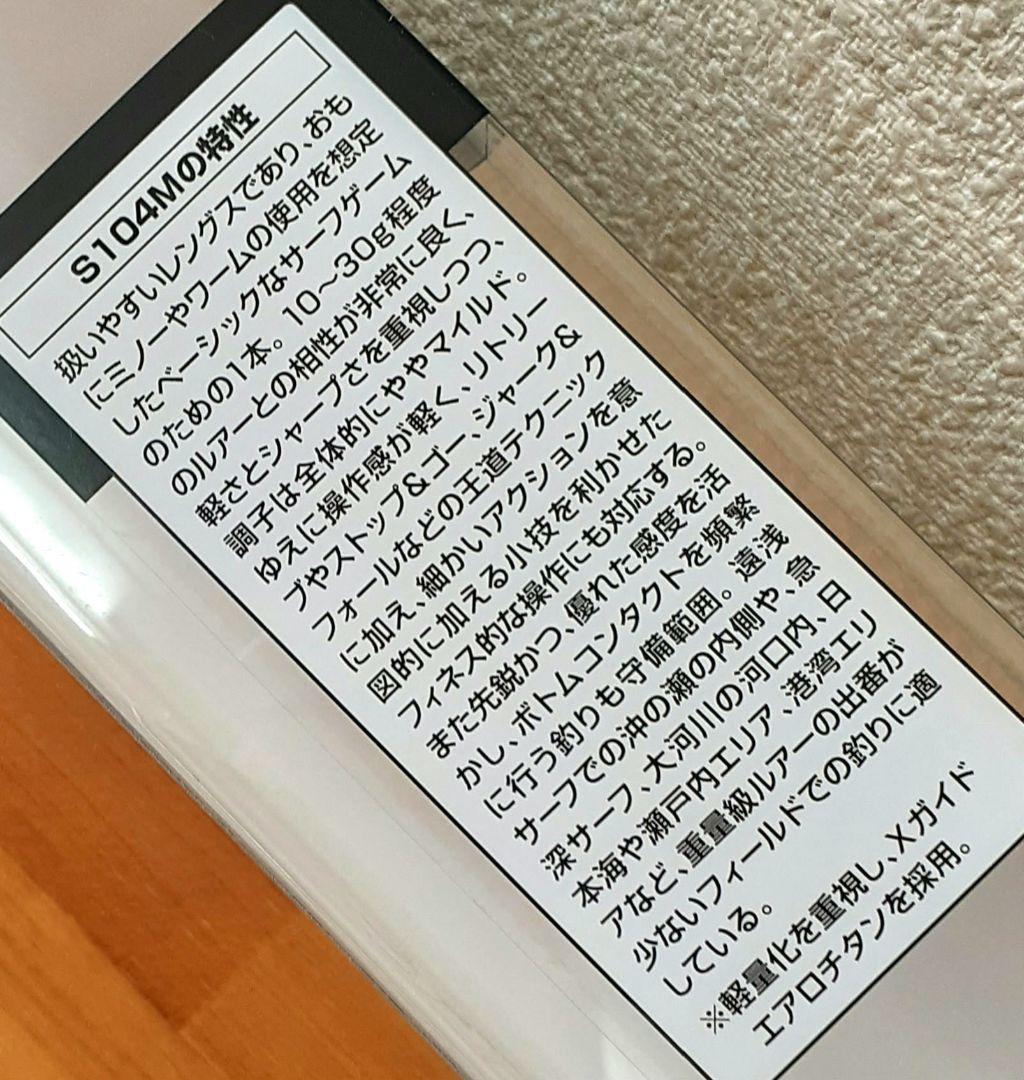 S104Mの特性
扱いやすいレングスであり、おも
にミノーやワームの使用を想定
したベーシックなサーフゲーム
のための1本。10〜30g程度
のルアーとの相性が非常に良く、
軽さとシャープさを重視しつつ、
調子は全体的にややマイルド。
ゆえに操作感が軽く、リトリー
ブやストップ&ゴー、ジャーク&
フォールなどの王道テクニック
に加え、細かいアクションを意
図的に加える小技を利かせた
フィネス的な操作にも対応する。
また先鋭かつ、優れた感度を活
かし、ボトムコンタクトを頻繁
に行う釣りも守備範囲。遠浅
サーフでの沖の瀬の内側や、急
深サーフ、大河川の河口内、日
本海や瀬戸内エリア、港湾エリ
アなど、重量級ルアーの出番が
少ないフィールドでの釣りに適
している。
※軽量化を重視し、Xガイド
エアロチタンを採用。